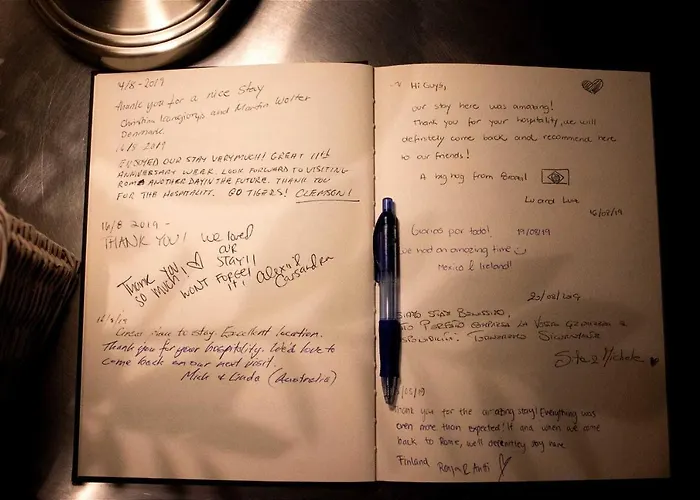 4/8-2019
Thank you for a nice stay
and Martin Wolter
Denmark.
16/8 2019
ENJOYED OUR STAY VARY MUCH! GREAT 11th
ANNIVERSARY WEEK. LOOK FORWARD TO VISITING
ROME ANOTHER DAY IN THE FUTURE. THANK YOU
FOR THE HOSPITALITY. GO TIGERS! CLEMSON!
16/8 2019 -
THANK YOU! We loved
OUR
STAY!!
Thank you
so much!
WONT FORGET
IT! Alexis &
Cassandra
Great place to stay. Excellent location.
Thank you for your hospitality. We'd love to
come back on our next visit.
(Australia)
Hi Guys,
our stay here was amazing!
Thank you for your hospitality, we will
definitely come back and recommend here
to our friends!
A big hug from Brazil
Lu and
16/08/19
Gracias por todo! 19/08/19
We had an amazing time
Mexico & Ireland!
23/08/2019
Siamo stati benissimo,
/08/19
Thank you for the amazing stay! Everything was
even more than expected! If and when we come
back to Rome, we'll definitely stay here
Finland